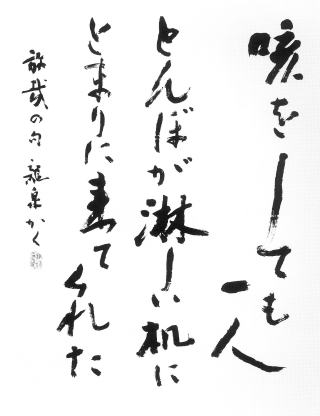 咳をしても一人
とんぼが淋しい机に
とまりに来てくれた
放哉の句 龍泉かく